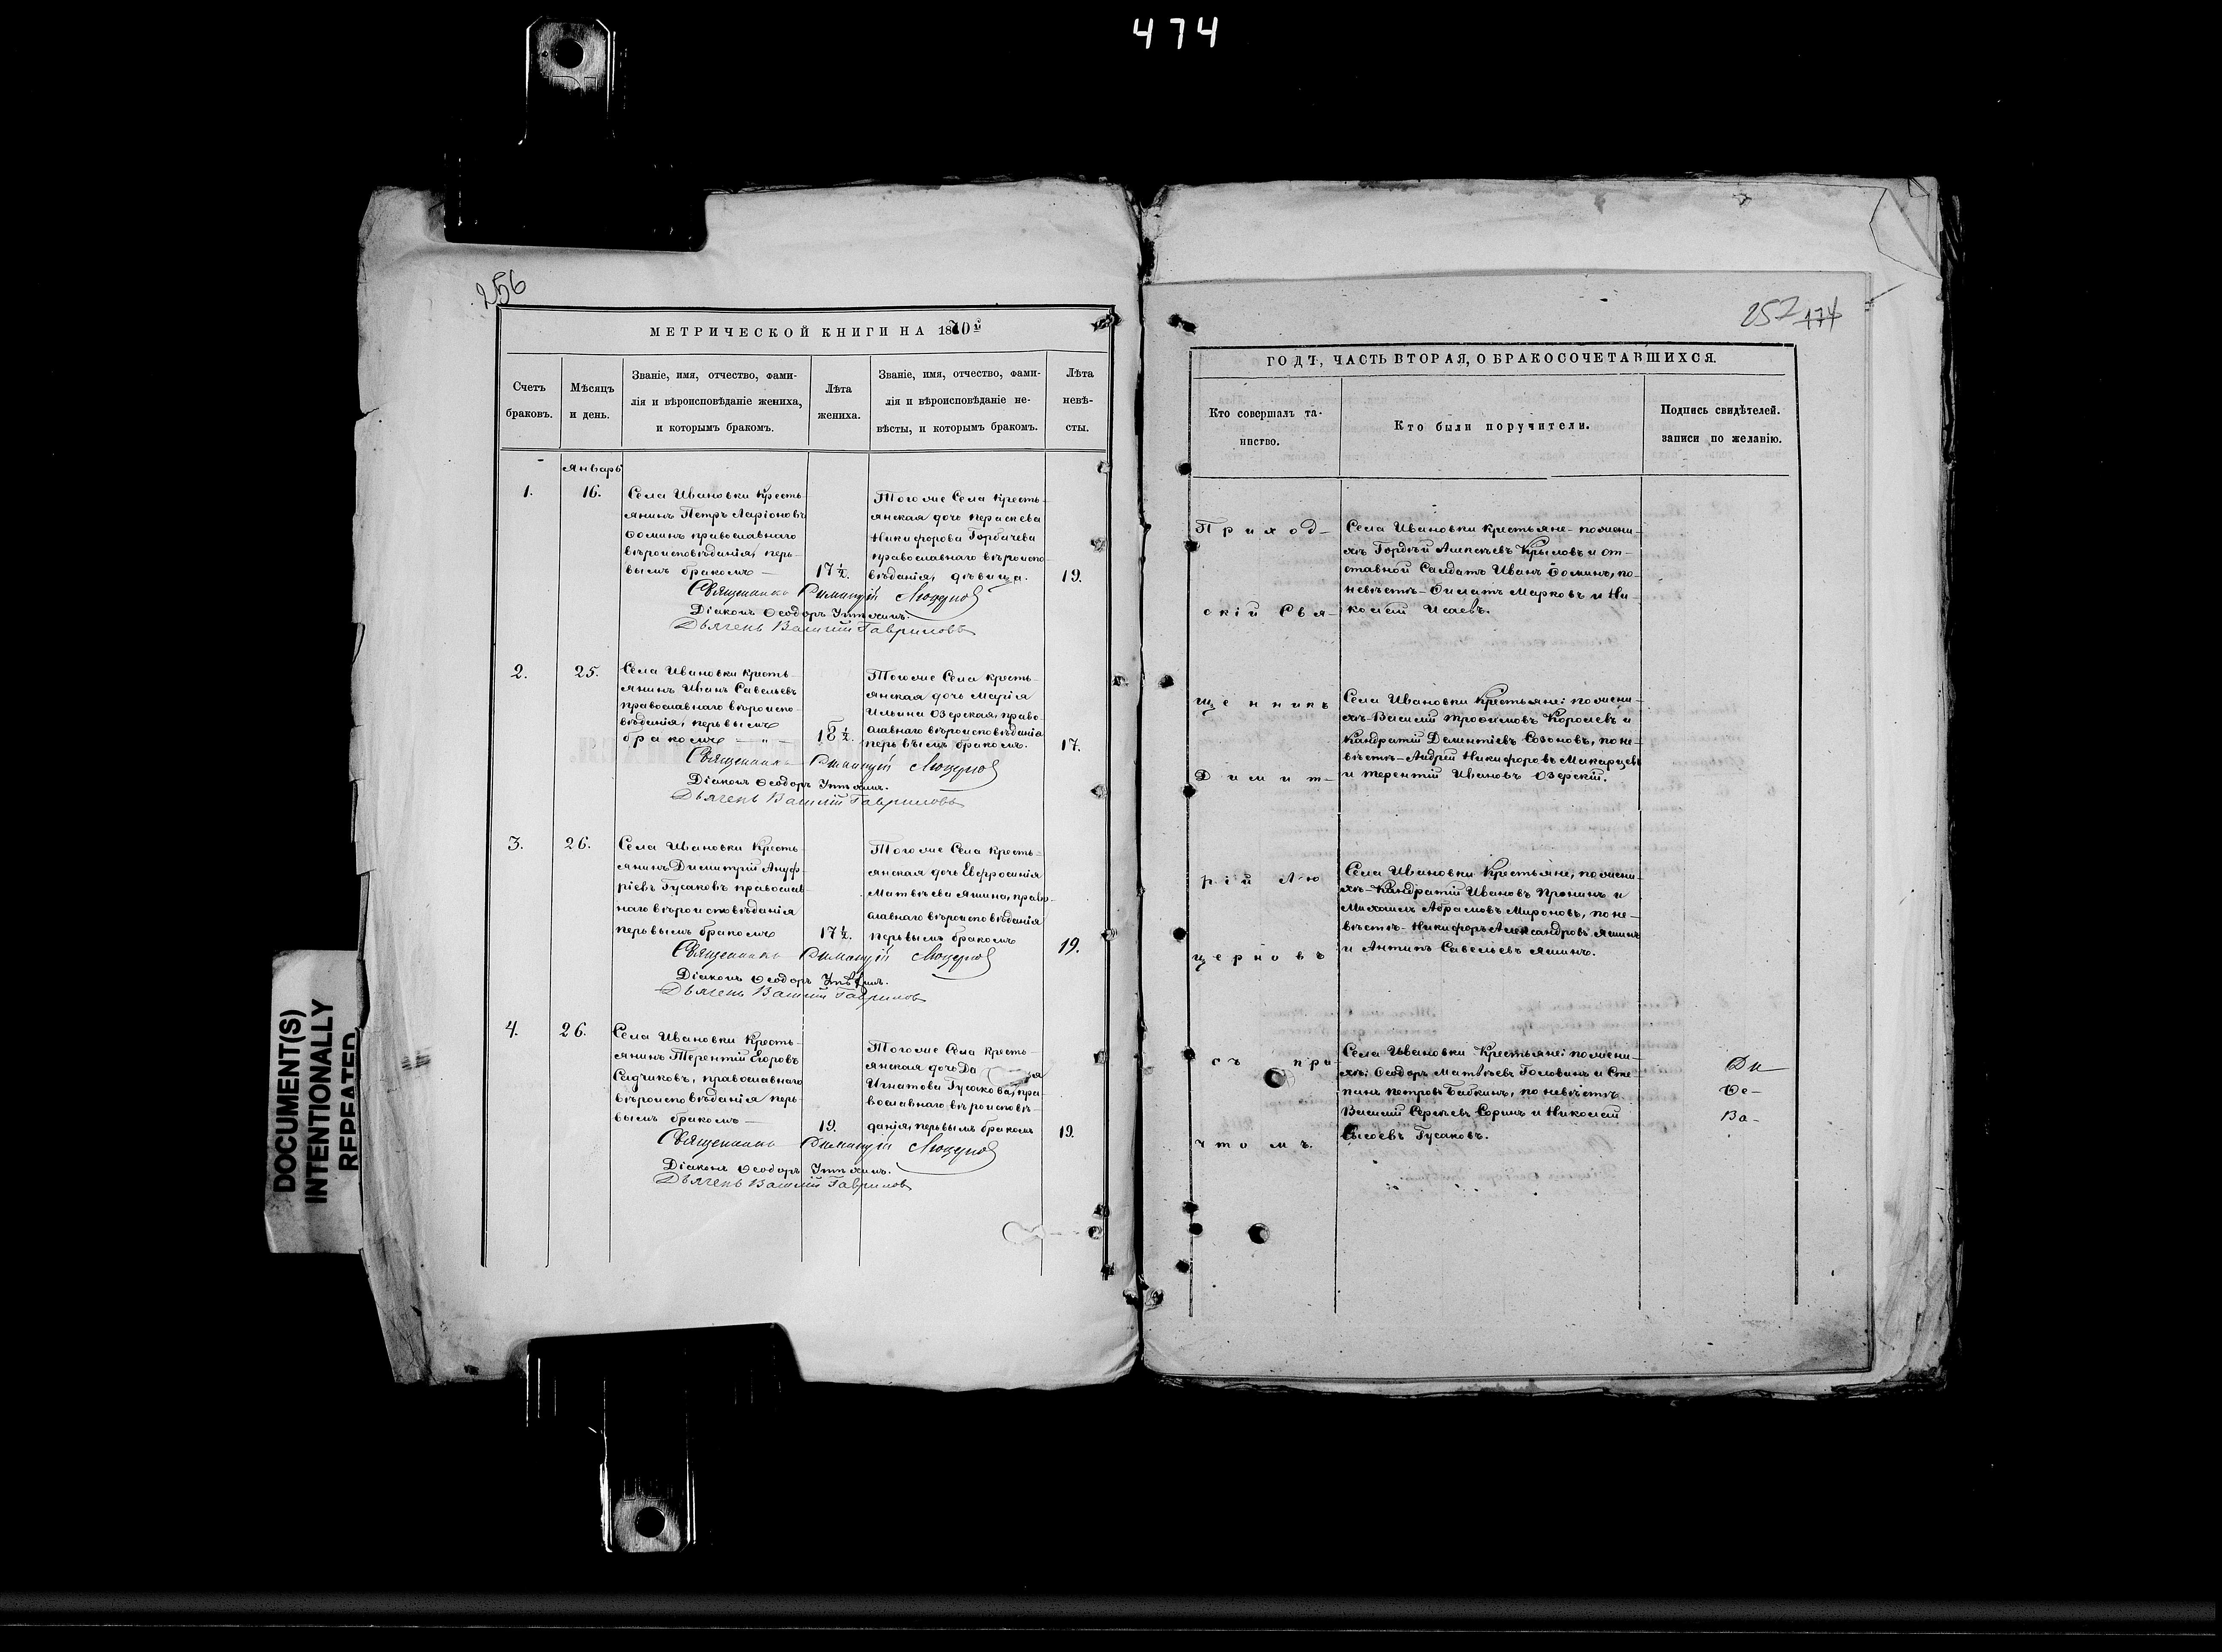 474
256
МЕТРИЧЕСКОЙ КНИГИ НА 1870й
Счетъ браковъ.
Мѣсяцъ и день.
Званіе, имя, отчество, фами-
лія и вѣроисповѣданіе жениха,
и которымъ бракомъ.
Лѣта жениха.
Званіе, имя, отчество, фами-
лія и вѣроисповѣданіе не-
вѣсты, и которымъ бракомъ.
Лѣта невѣ-
сты.
Январь
1.
16.
Села Ивановки Кресть-
янинъ Петръ Ларіоновъ
Ѳоминъ православнаго
вѣроисповѣданія, пер-
вымъ бракомъ —
17½.
Того же Села кресть-
янская дочь Параскева
Никифорова Горбачева
православнаго вѣроиспо-
вѣданія, дѣвица.
19.
Священникъ Димитрій Люцерновъ
Діаконъ Ѳеодоръ
Дьячекъ Василій Гавриловъ
2.
25.
Села Ивановки кресть-
янинъ Иванъ Савельевъ
православнаго вѣроиспо-
вѣданія, первымъ
бракомъ — " —
18½.
Того же Села кресть-
янская дочь Марія
Ильина Озерская, право-
славнаго вѣроисповѣданія
первымъ бракомъ.
17.
Священникъ Димитрій Люцерновъ
Діаконъ Ѳеодоръ
Дьячекъ Василій Гавриловъ
3.
26.
Села Ивановки Кресть-
янинъ Димитрій Ануф-
ріевъ Гусаковъ православ-
наго вѣроисповѣданія
первымъ бракомъ
17½.
Того же Села кресть-
янская дочь Евфросинія
Матвѣева Яшина, право-
славнаго вѣроисповѣданія
первымъ бракомъ
19.
Священникъ Димитрій Люцерновъ
Діаконъ Ѳеодоръ
Дьячекъ Василій Гавриловъ
4.
26.
Села Ивановки Кресть-
янинъ Терентій Егоровъ
Садчиковъ, православнаго
вѣроисповѣданія пер-
вымъ бракомъ —
19.
Того же Села кресть-
янская дочь Да
Игнатова Гусакова, пра-
вославнаго вѣроисповѣ-
данія, первымъ бракомъ
19.
Священникъ Димитрій Люцерновъ
Діаконъ Ѳеодоръ
Дьячекъ Василій Гавриловъ
DOCUMENT(S)
INTENTIONALLY
REPEATED
257 174
ГОДЪ, ЧАСТЬ ВТОРАЯ, О БРАКОСОЧЕТАВШИХСЯ.
Кто совершалъ та-
инство.
Кто были поручители.
Подпись свидѣтелей.
записи по желанію.
Приход-
скій Свя-
щенникъ
Димит-
рій Лю
церновъ
съ при
чтомъ.
Села Ивановки крестьяне - по жени-
хѣ Гордѣй Алексѣевъ Крыловъ и от-
ставной Салдатъ Иванъ Ѳоминъ, по-
невѣстѣ - Филатъ Марковъ и Ни-
колай Исаевъ.
Села Ивановки Крестьяне: по жени-
хѣ - Василій Трофимовъ Королевъ и
Кандратій Дементіевъ Созоновъ, по не-
вѣстѣ - Андрей Никифоровъ Макарцевъ
и Терентій Ивановъ Озерскій.
Села Ивановки Крестьяне, по жени-
хѣ - Кандратій Ивановъ Пронинъ и
Михаилъ Абрамовъ Мироновъ, по не-
вѣстѣ - Никифоръ Александровъ Яшинъ
и Антипъ Савельевъ Яшинъ.
Села Ивановки Крестьяне: по жени-
хѣ: Ѳеодоръ Матвѣевъ Головинъ и Сте-
панъ Петровъ Бабкинъ, по невѣстѣ
Василій Сергѣевъ Соринъ и Николай
Сысоевъ Гусаковъ.
Ди
Ѳе-
Ва-